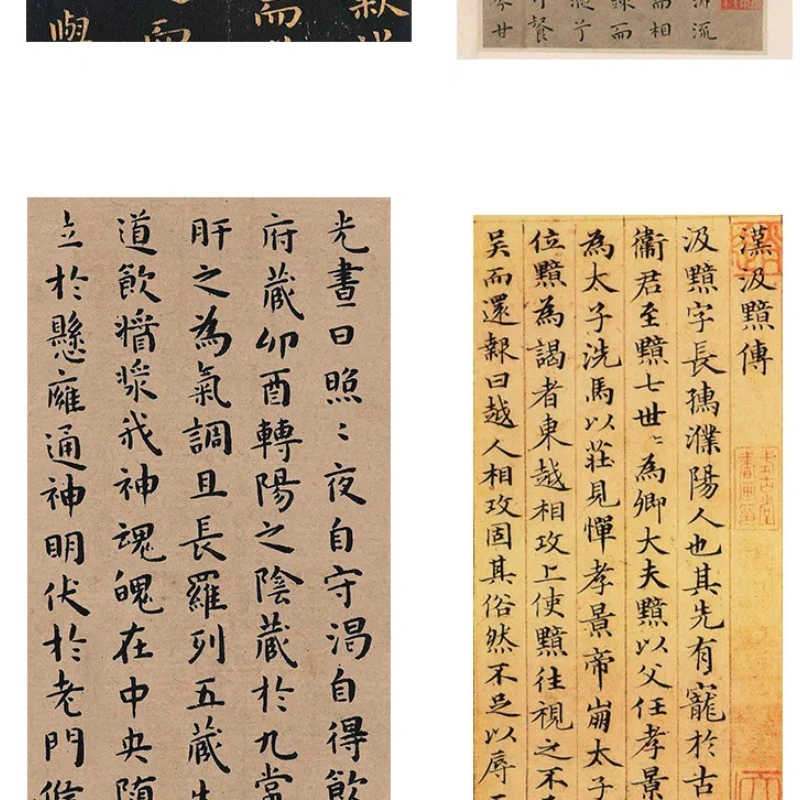 而
而
與
流
而相
而
餐
廿
光晝日照〻夜自守渴自得飲
府藏卯酉轉陽之陰藏於九常
肝之為氣調且長羅列五藏生
道飲醬漿我神魂魄在中央隨
立於懸廱通神明伏於老門候
漢汲黯傳
汲黯字長孺濮陽人也其先有寵於古
衛君至黯七世〻為卿大夫黯以父任孝景
為太子洗馬以莊見憚孝景帝崩太子
位黯為謁者東越相攻上使黯往視之不
吳而還報曰越人相攻固其俗然不足以辱